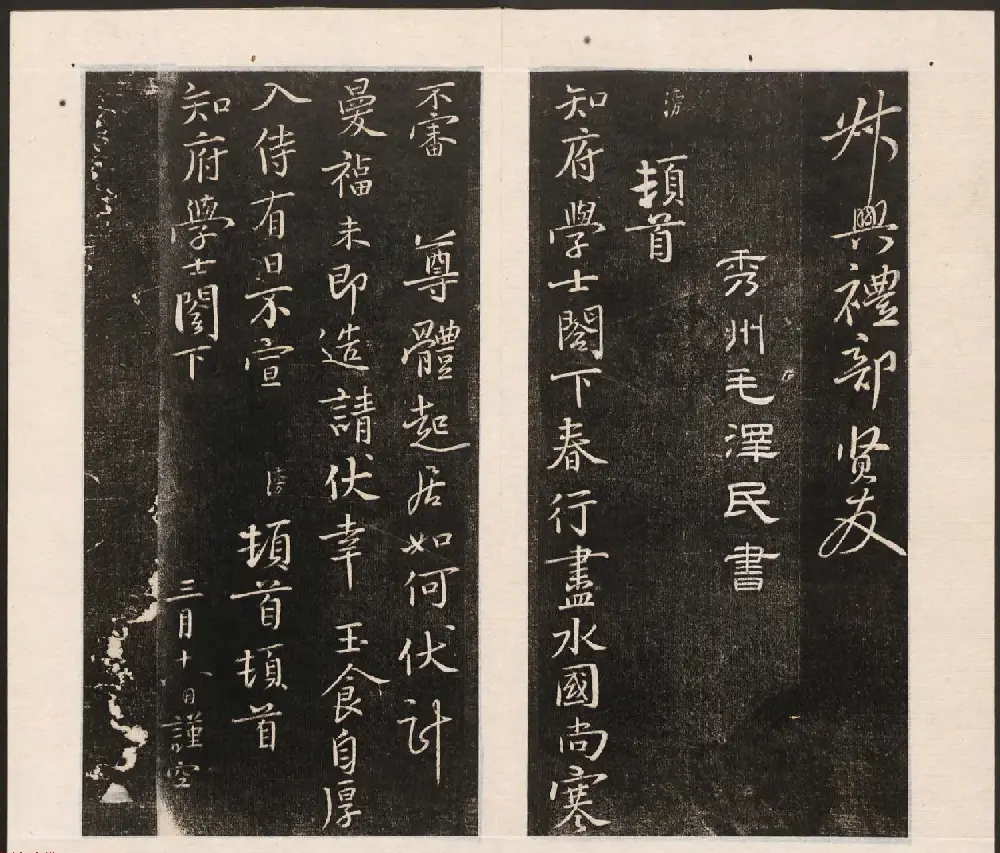 叔興禮部贤友
秀州毛澤民書
滂
頓首
知府學士閤下春行盡水國尚寒
不審 尊體起居如何伏計
曼福未即造請伏幸 玉食自厚
入侍有日不宣 滂 頓首頓首
知府學士閤下
三月十八日謹空